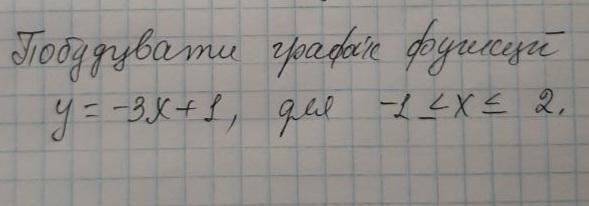 Побудувати графік функції
y = -3x + 1, для -1 ≤ x ≤ 2.